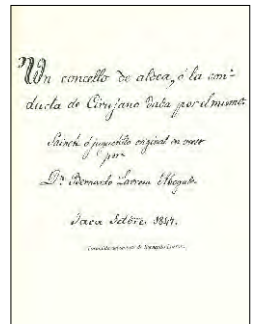 Un concello de aldea, ó la con-
ducta de Cirujano dada por él mismo
Sainete ó juguetillo original en verso
por
Dn. Bernardo Larrosa
Jaca Setbre. 1847.